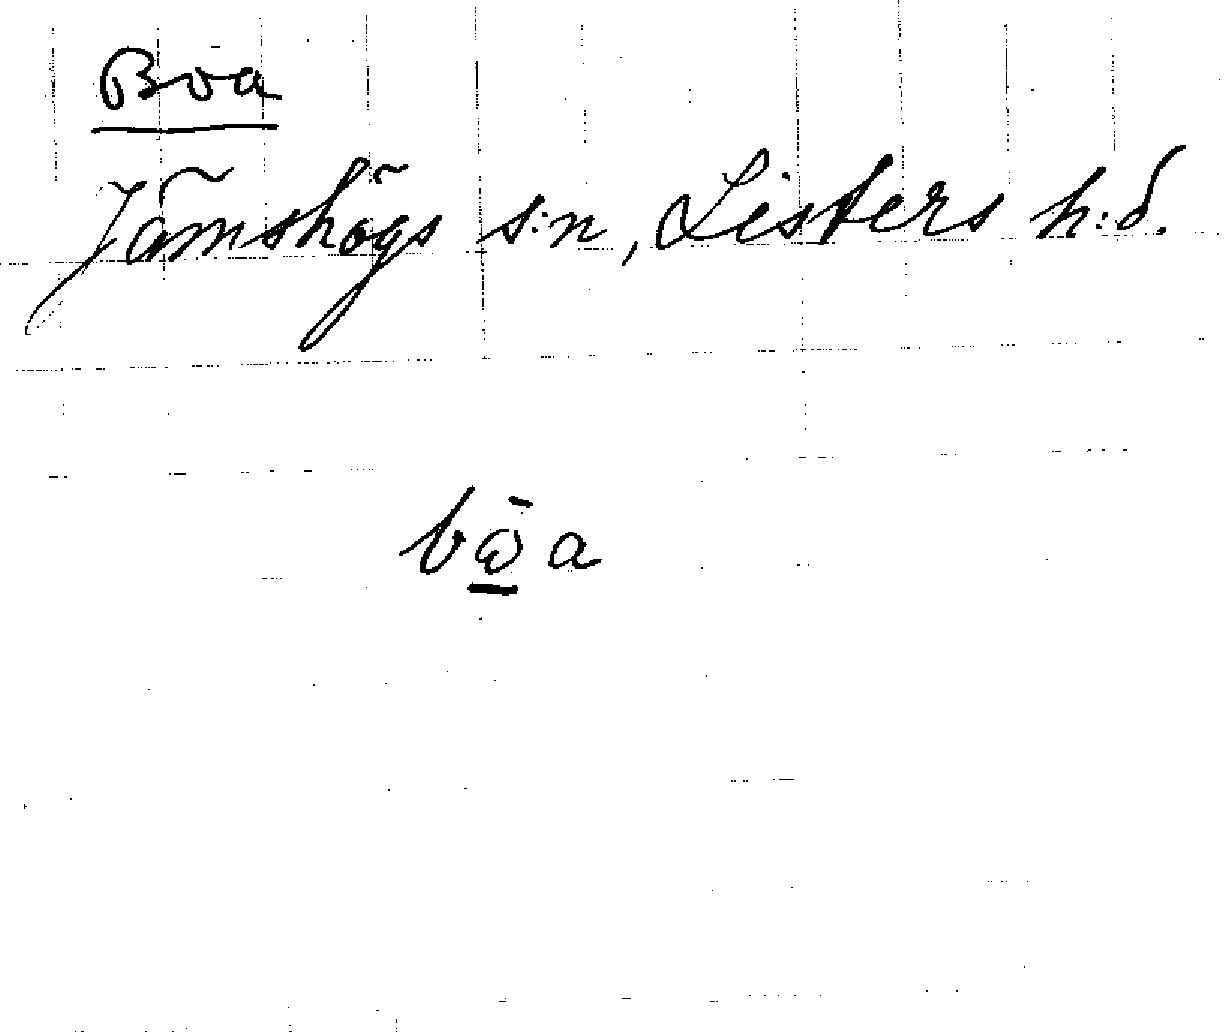 Boa
Jämshögs s:n, Listers h:d.
bω̄a